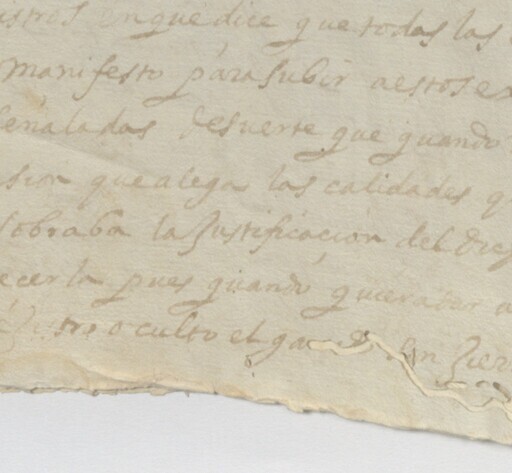 en que dice que todas las
manifesto para subir a estos
señaladas desuerte que quando
sion que alega las calidades q
sobraba la Justificacion del
ecerla pues quando
oculto el